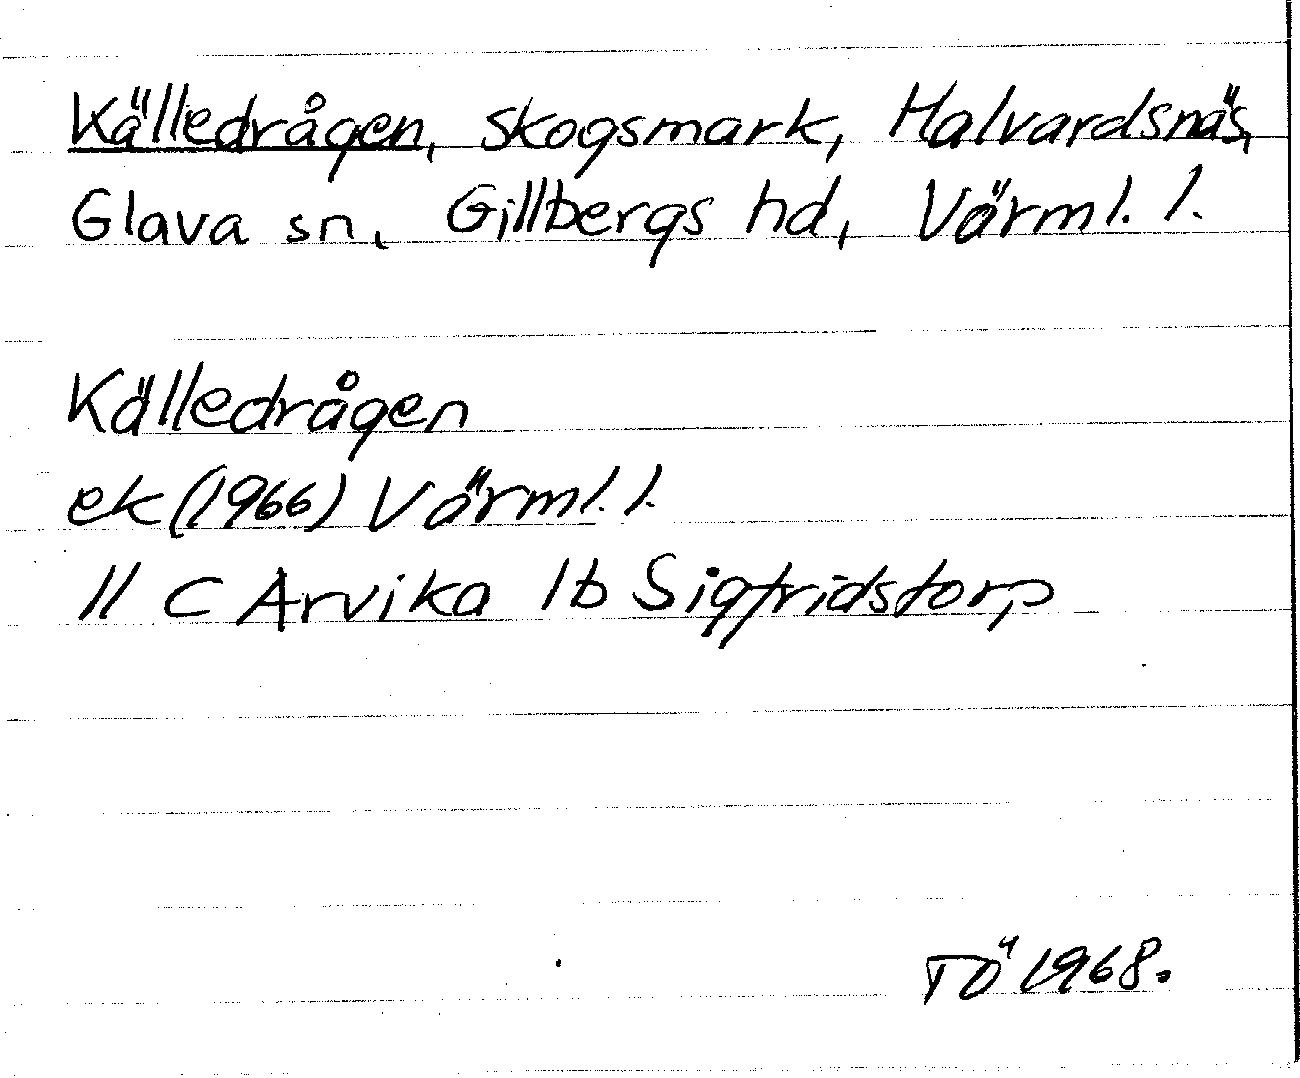 Källedrågen, skogsmark, Halvardsnäs,
Glava sn, Gillbergs hd, Värml. l.
Källedrågen
ek (1966) Värml. l.
11 C Arvika 1b Sigfridstorp
TÖ 1968.